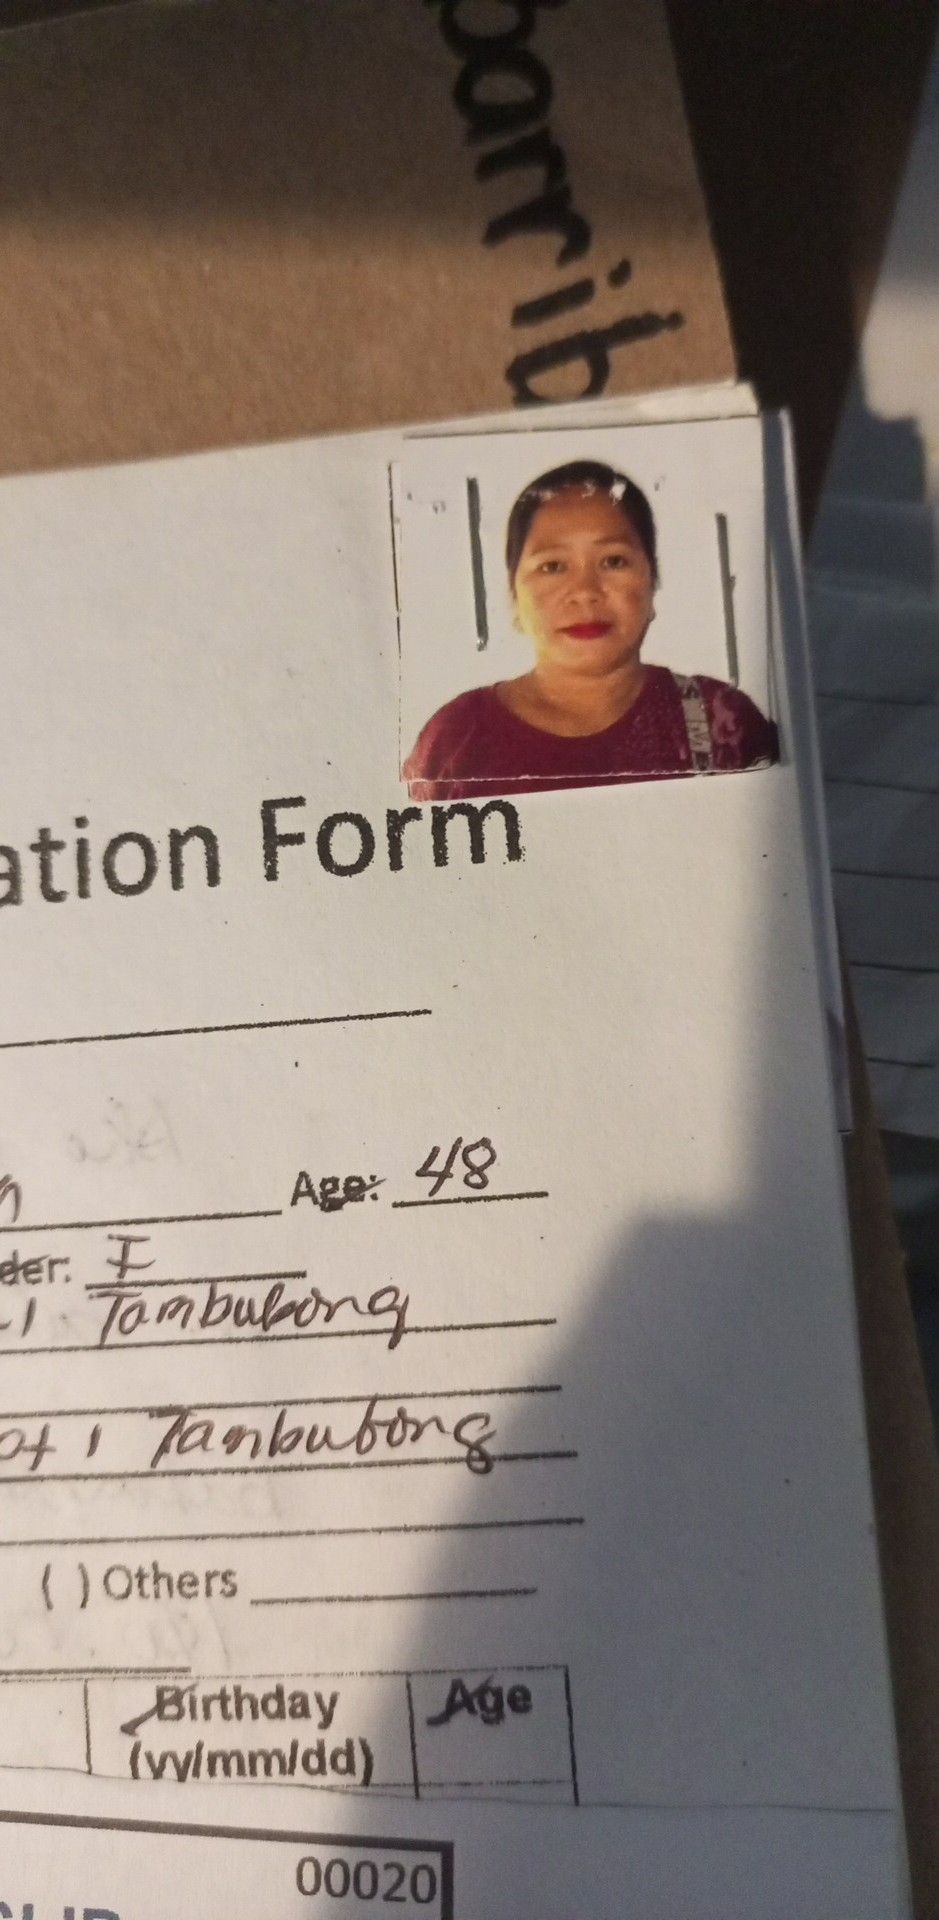 barrib
ation Form
Age: 48
der: F
-1. Tambubong
ot 1 Tambubong
( ) Others
Birthday Age
(yy/mm/dd)
00020